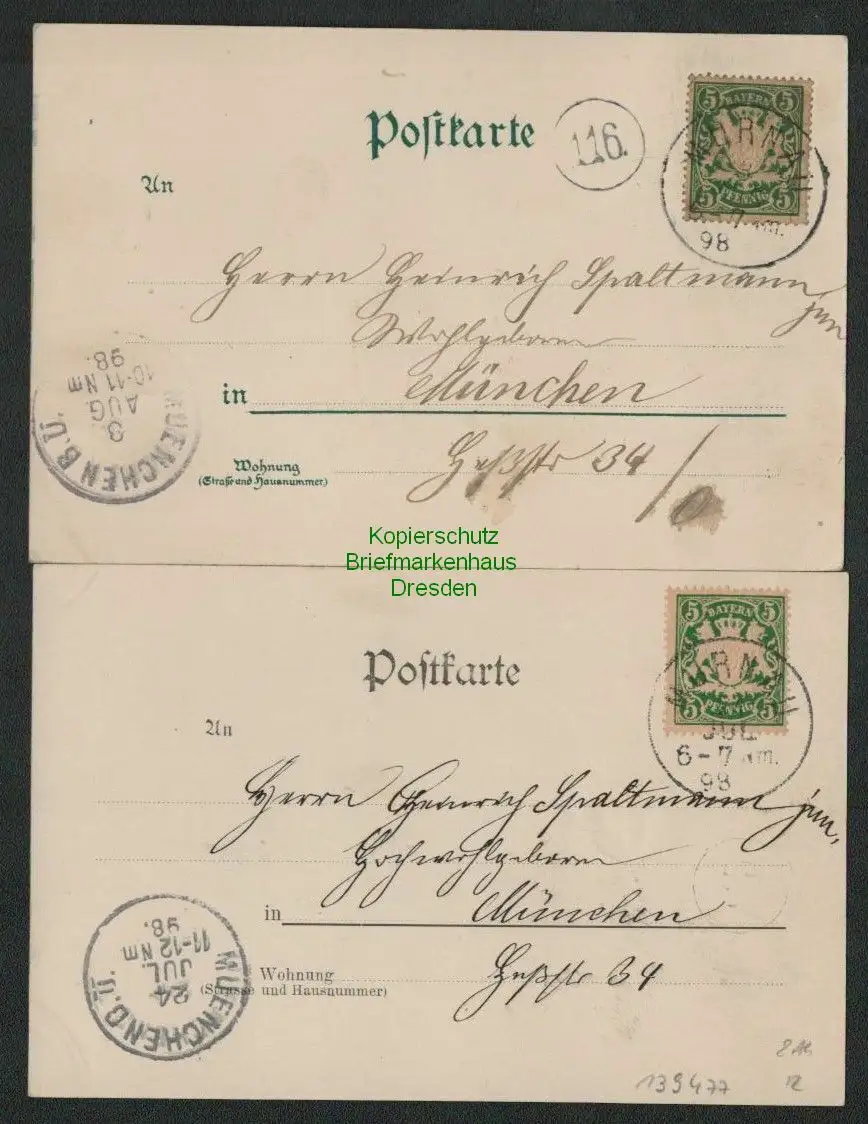 Postkarte
116.
5 BAYERN 5
5 PFENNIG 5
MURNAU
7 Nm.
98
An
Herrn Heinrich Spaltmann jun
Wohlgeboren
in München
MUENCHEN B.Ü.
3
AUG.
10-11 Nm
98.
Wohnung
(Straße und Hausnummer)
Heßstr 34
Kopierschutz
Briefmarkenhaus
Dresden
Postkarte
5 BAYERN 5
5 PFENNIG 5
MURNAU
JUL
6-7 Nm.
98
An
Herrn Heinrich Spaltmann jun.
Hochwohlgeboren
in München
MUENCHEN O.Ü.
24
JUL.
11-12 Nm
98.
Wohnung
(Strasse und Hausnummer)
Heßstr 34
139477